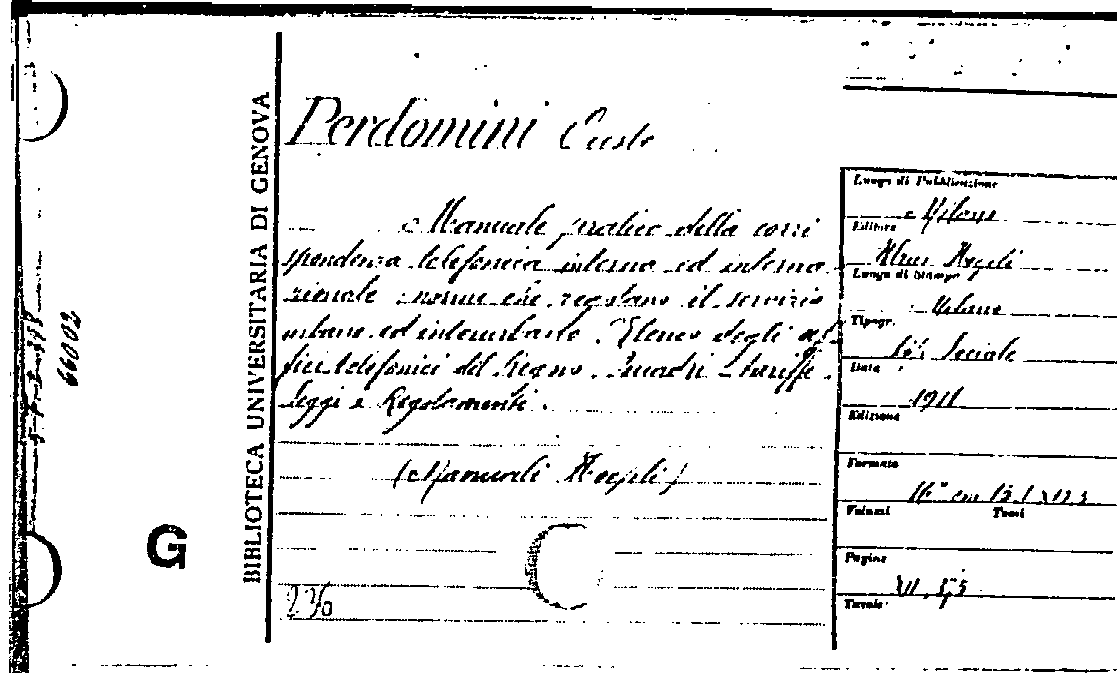 BIBLIOTECA UNIVERSITARIA DI GENOVA
66002
G
Perdomini
Manuale pratico della corri
spondenza telefonica interna ed interna
zionale: norme che regolano il servizio
urbano ed interurbano. Elenco degli uf
fici telefonici del Regno. Quadri - tariffe.
Leggi e Regolamenti.
(Manuali Hoepli)
Luogo di Pubblicazione
Milano
Editore
Hoepli
Luogo di Stampa
Milano
Tipogr.
Sociale
Data
1911
Edizione
Formato
16° cm
Volumi Tomi
Pagine
Tavole